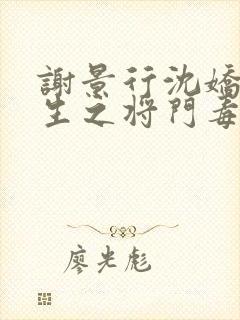 謝景行沈嬌
生之将門毒
廖光彪